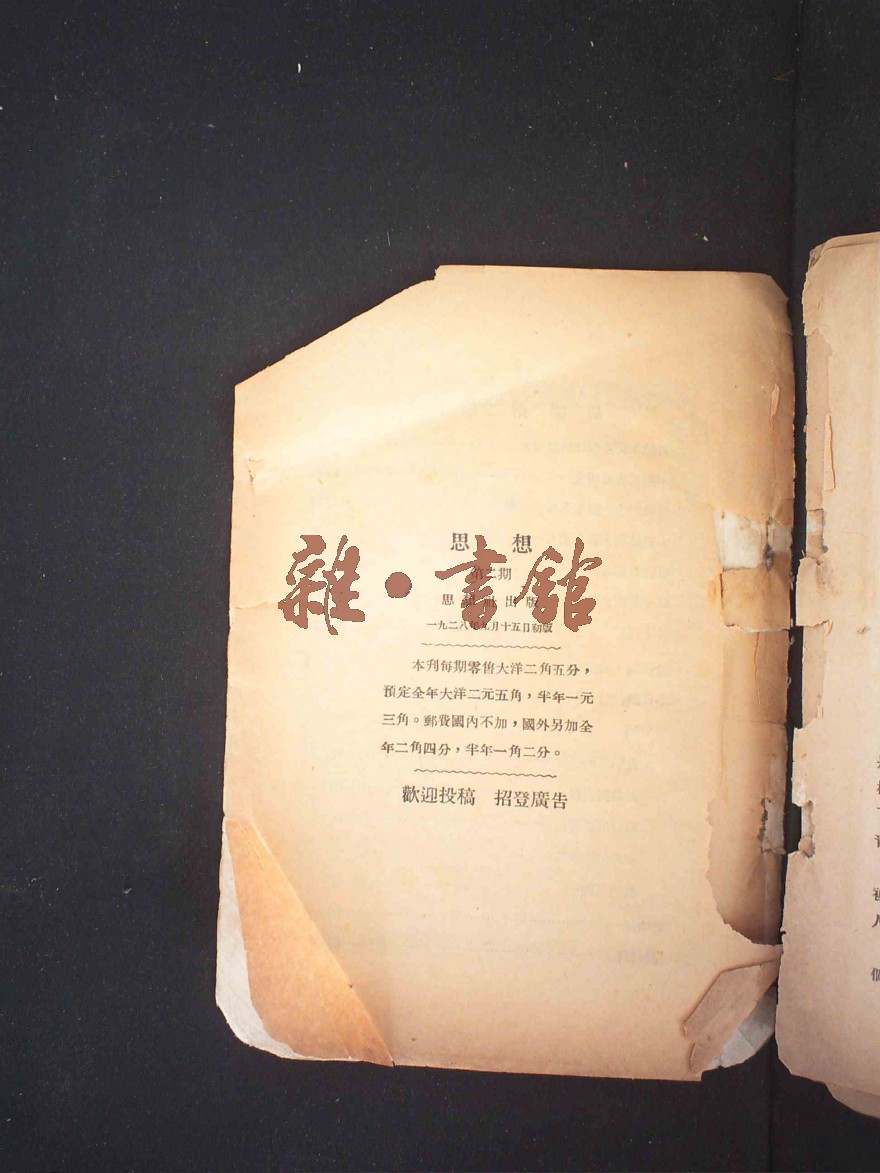 思 想
第二期
思想社出版
一九二八年九月十五日初版
本刊每期零售大洋二角五分，
預定全年大洋二元五角，半年一元
三角。郵費國內不加，國外另加全
年二角四分，半年一角二分。
歡迎投稿 招登廣告
雜·書館
人
個